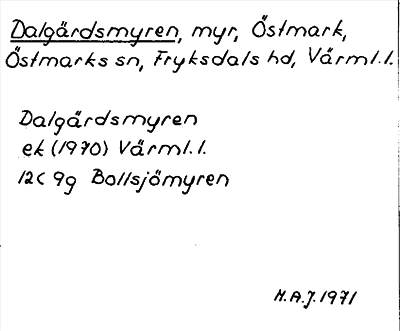 Dalgärdsmyren, myr, Östmark,
Östmarks sn, Fryksdals hd, Värml.l.
Dalgärdsmyren
ek (1970) Värml.l.
12C 9g Bollsjömyren
M.A.J. 1971